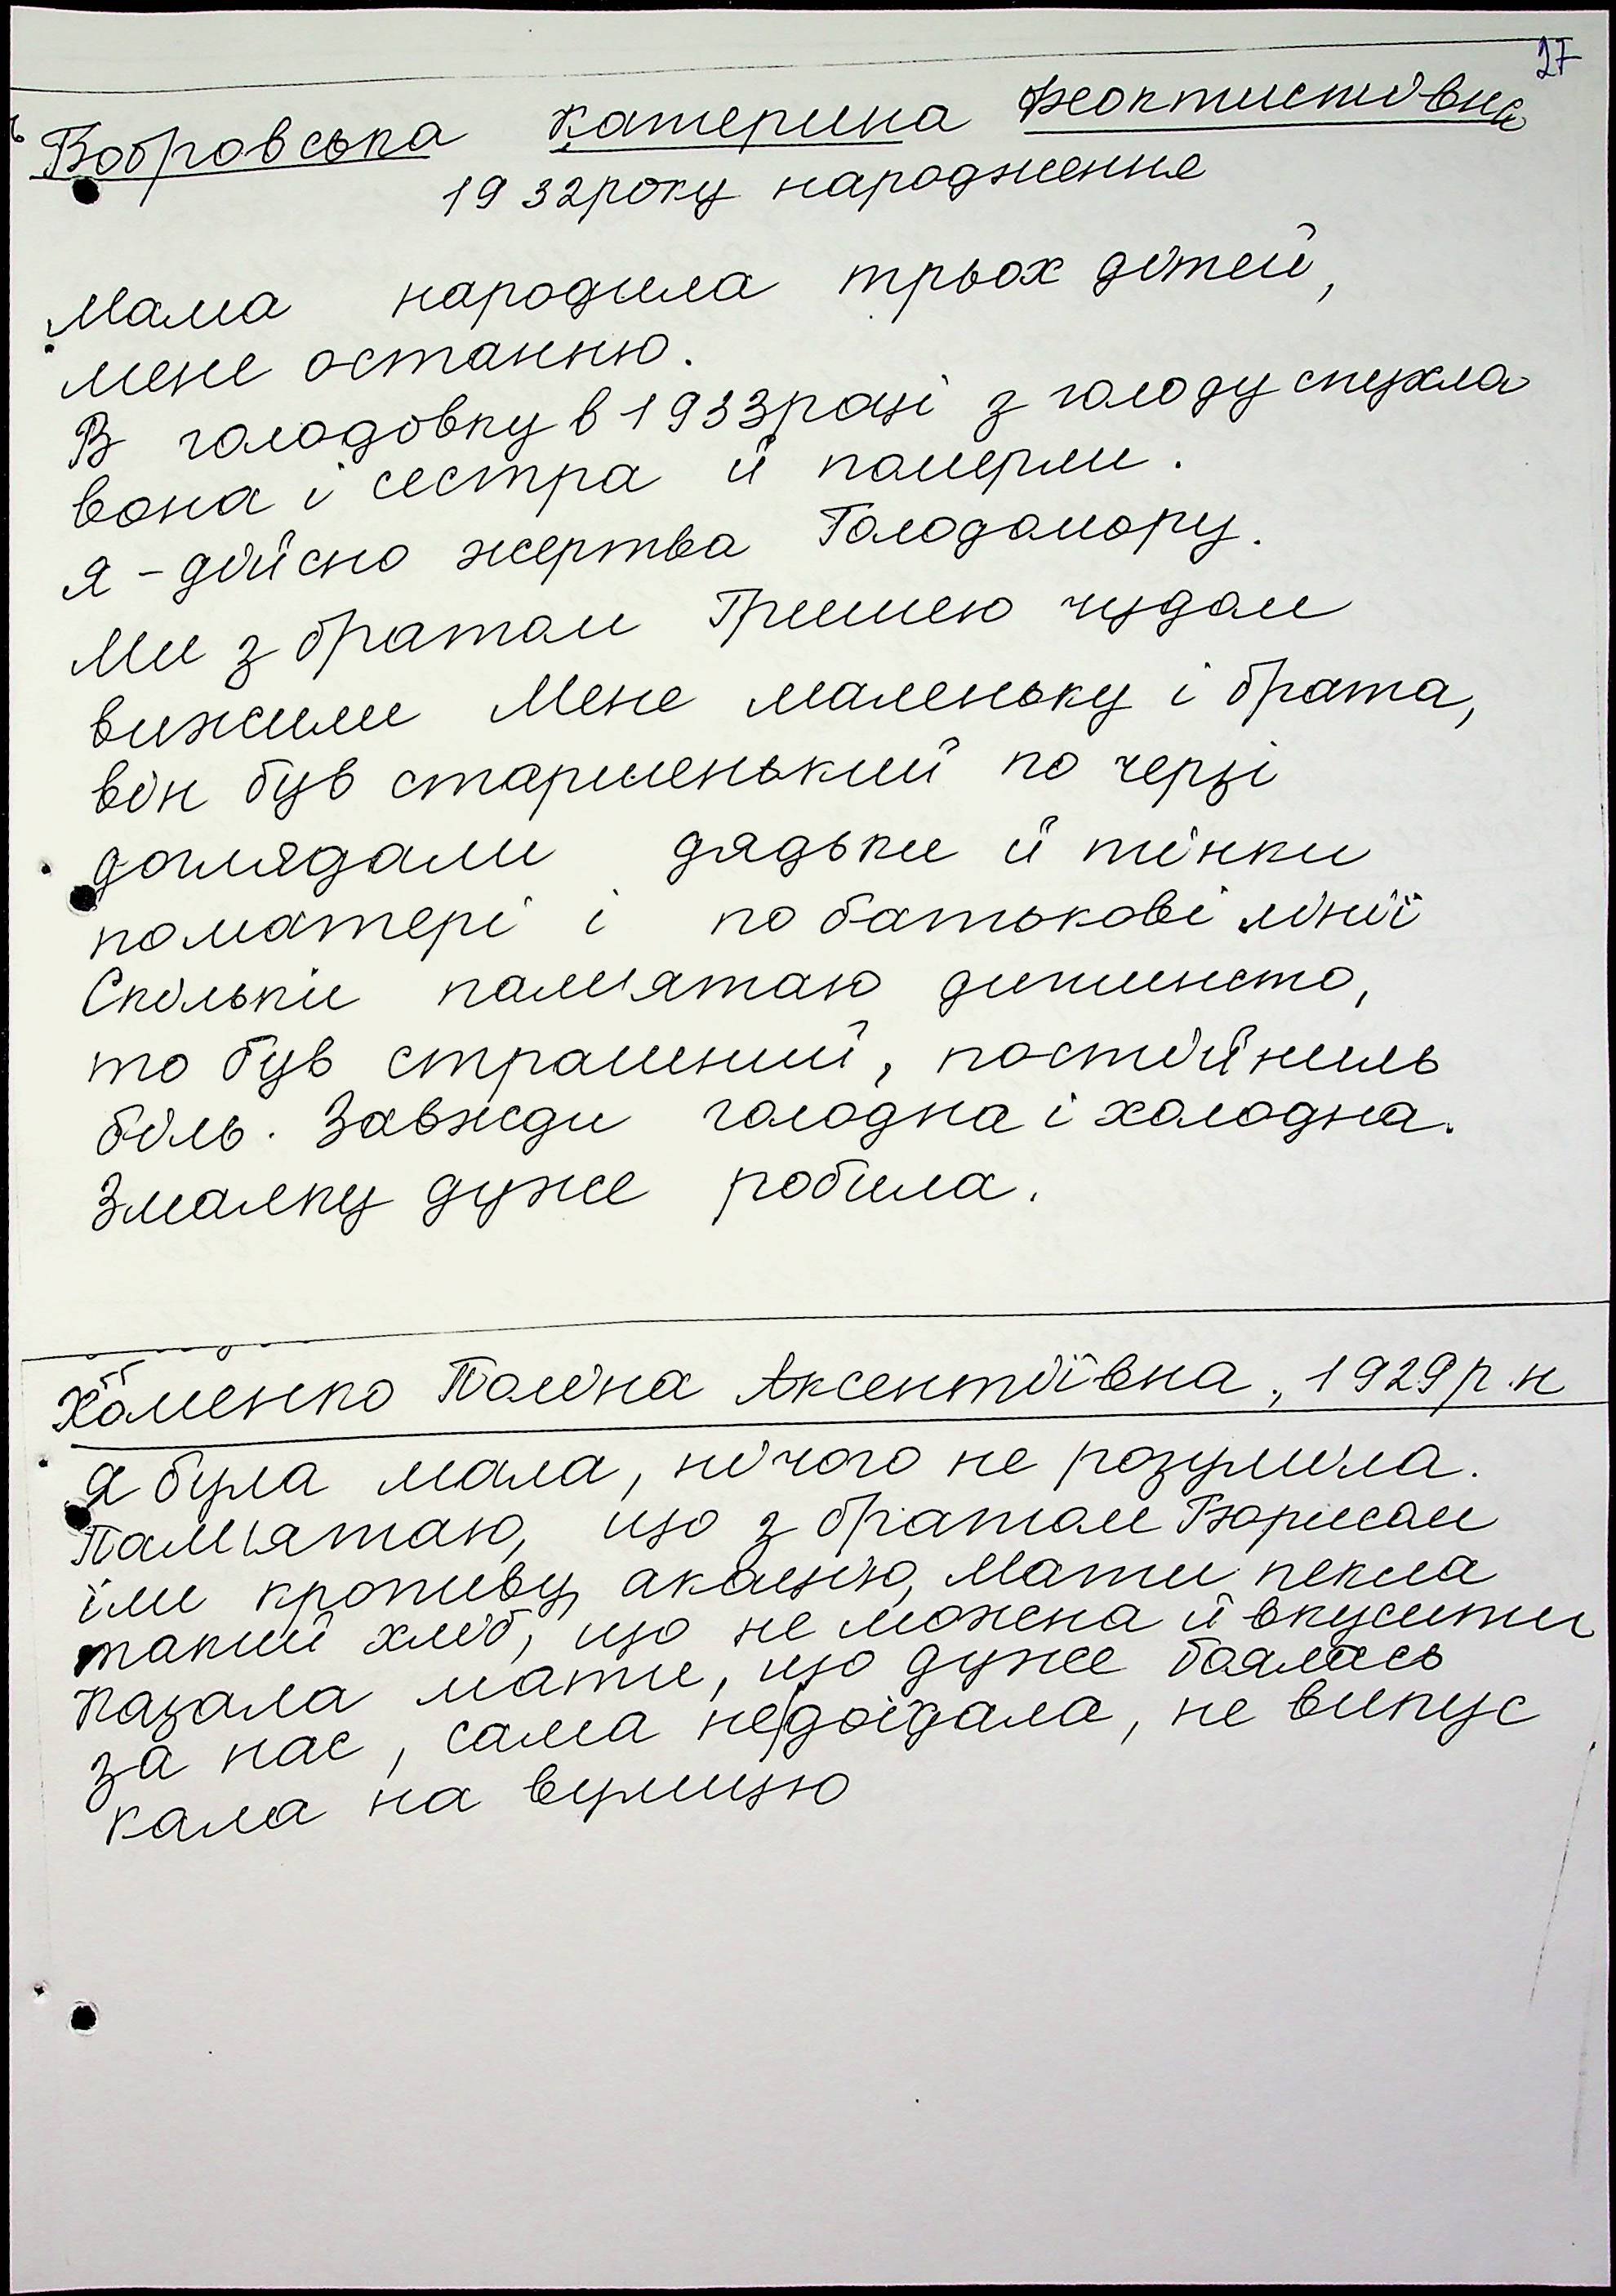 27
Бобровська Катерина Феоктистівна
1932 року народження
Мама народила трьох дітей,
мене останню.
В голодовку в 1933 році з голоду спухла
вона і сестра й померли.
Я - дійсно жертва Голодомору.
Ми з братом Гришею чудом
вижили Мене маленьку і брата,
він був старшенький по черзі
доглядали дядьки й тітки
по матері і по батькові лінії
Скільки пам'ятаю дитинство,
то був страшний, постійниль
біль. Завжди голодна і холодна.
Змалку дуже робила.
Хоменко Поліна Аксентіївна, 1929 р.н
Я була мала, нічого не розуміла.
Пам'ятаю, що з братом Борисом
їли кропиву, акацію, мати пекла
такий хліб, що не можна й вкусити
Казала мати, що дуже боялась
за нас, сама недоїдала, не випус
кала на вулицю